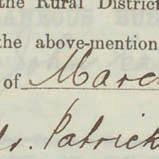 the Rural District
the above-mention
of Marc
Patrick